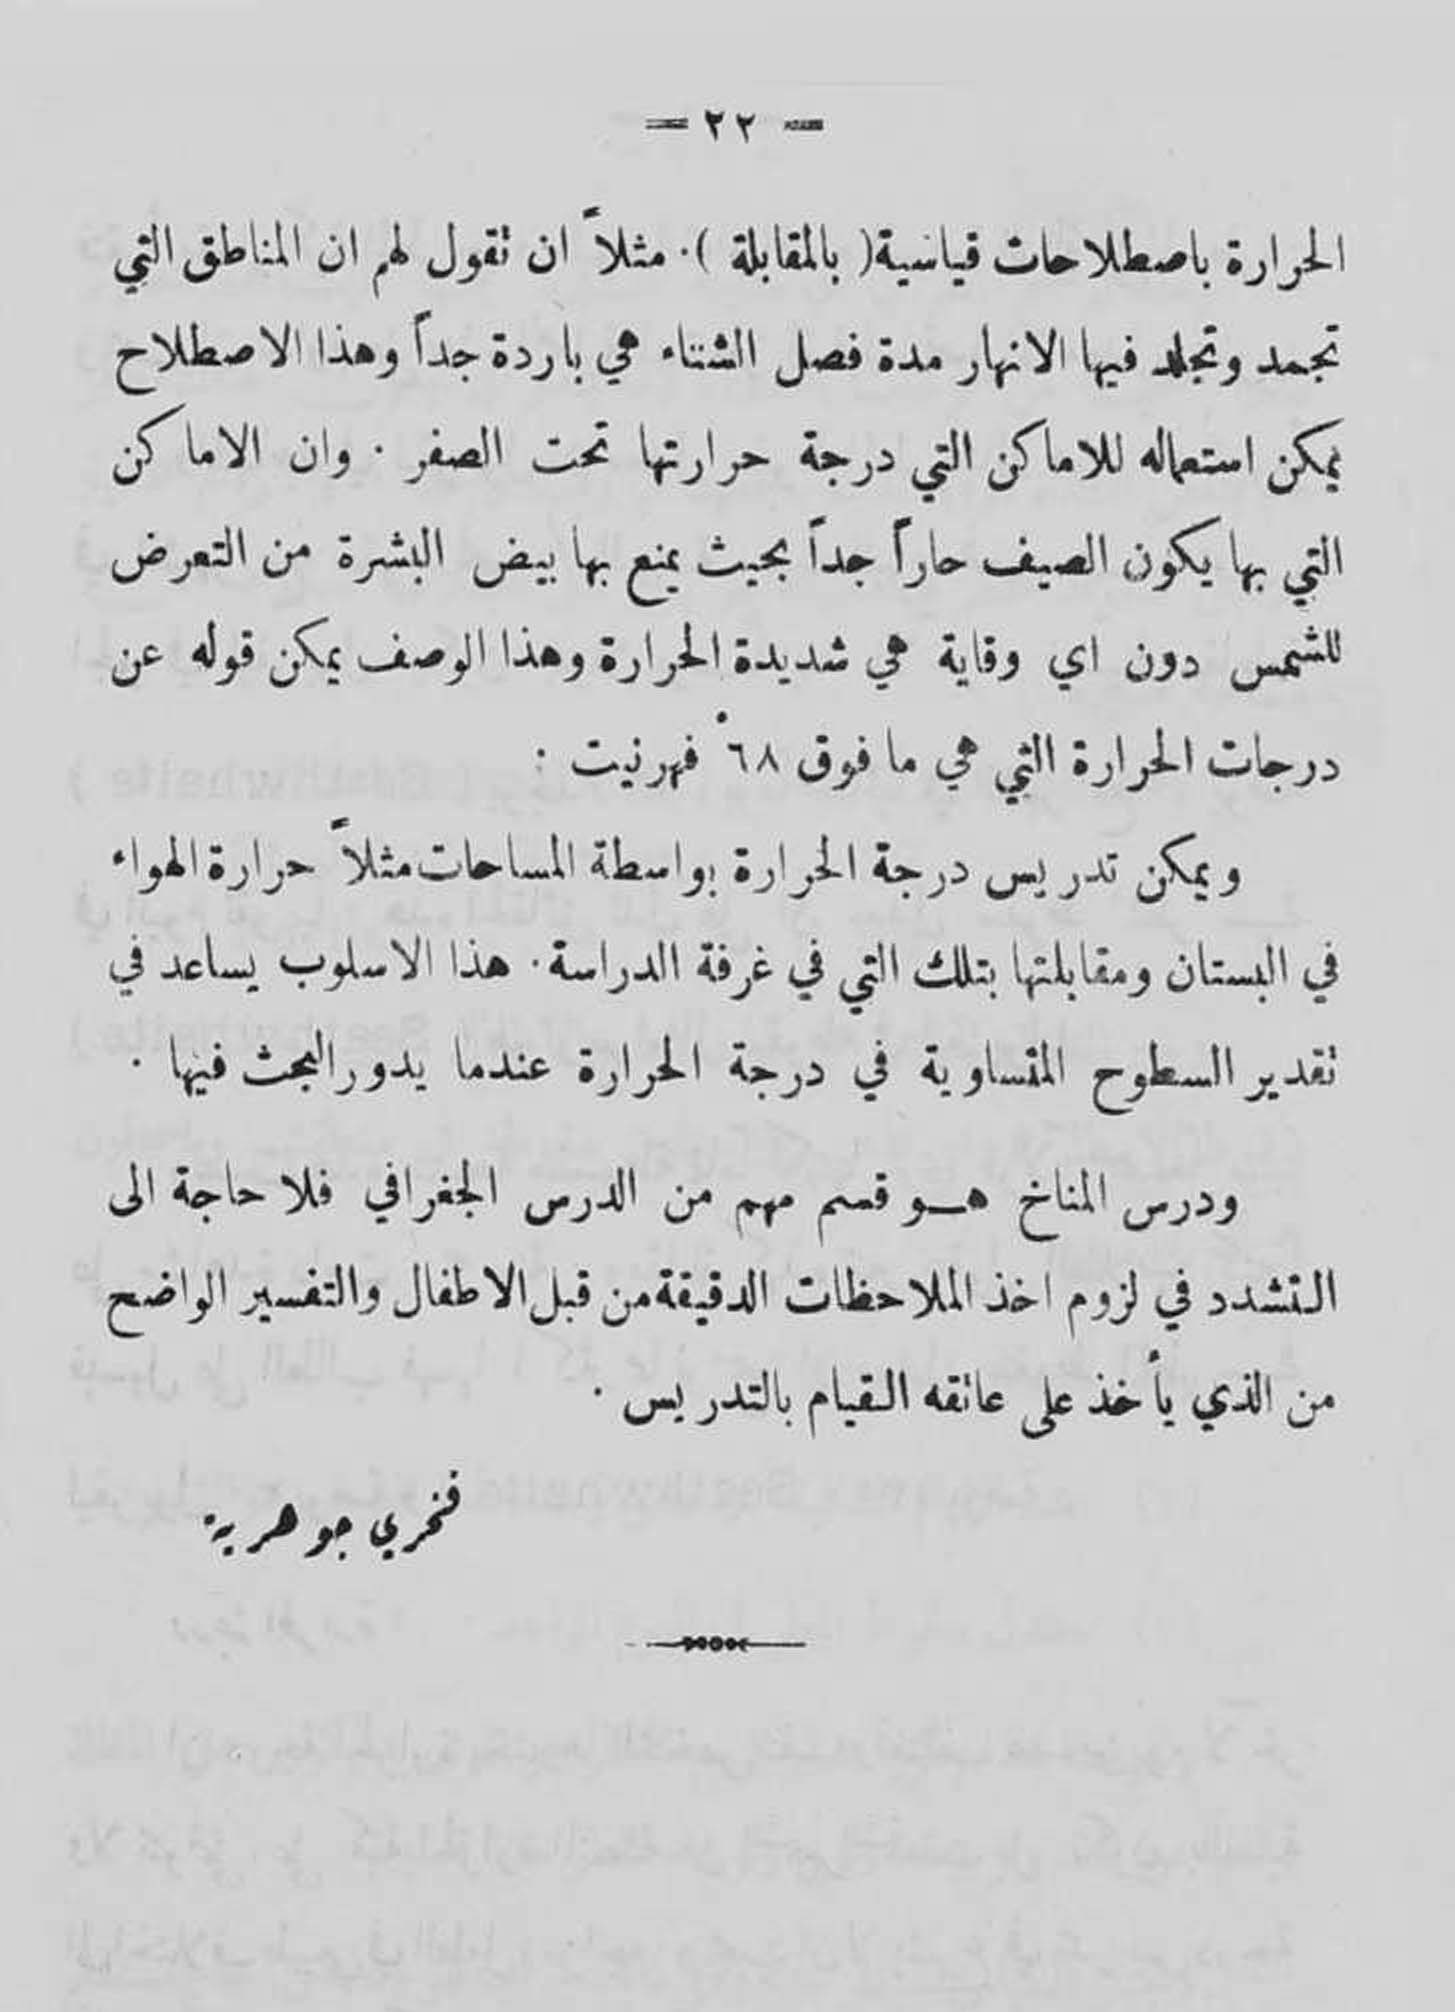 = ٢٢ =
الحرارة باصطلاحات قياسية ( بالمقابلة ) . مثلاً ان نقول لهم ان المناطق التي
تجمد وتجلد فيها الانهار مدة فصل الشتاء هي باردة جداً وهذا الاصطلاح
يمكن استعماله للاماكن التي درجة حرارتها تحت الصفر . وان الاماكن
التي بها يكون الصيف حاراً جداً بحيث يمنع بها بيض البشرة من التعرض
للشمس دون اي وقاية هي شديدة الحرارة وهذا الوصف يمكن قوله عن
درجات الحرارة التي هي ما فوق ٦٨° فهرنيت :
ويمكن تدريس درجة الحرارة بواسطة المساحات مثلاً حرارة الهواء
في البستان ومقابلتها بتلك التي في غرفة الدراسة . هذا الاسلوب يساعد في
تقدير السطوح المتساوية في درجة الحرارة عندما يدور البحث فيها .
ودرس المناخ هـو قسم مهم من الدرس الجغرافي فلا حاجة الى
التشدد في لزوم اخذ الملاحظات الدقيقة من قبل الاطفال والتفسير الواضح
من الذي يأخذ على عاتقه القيام بالتدريس .
فخري جوهرية